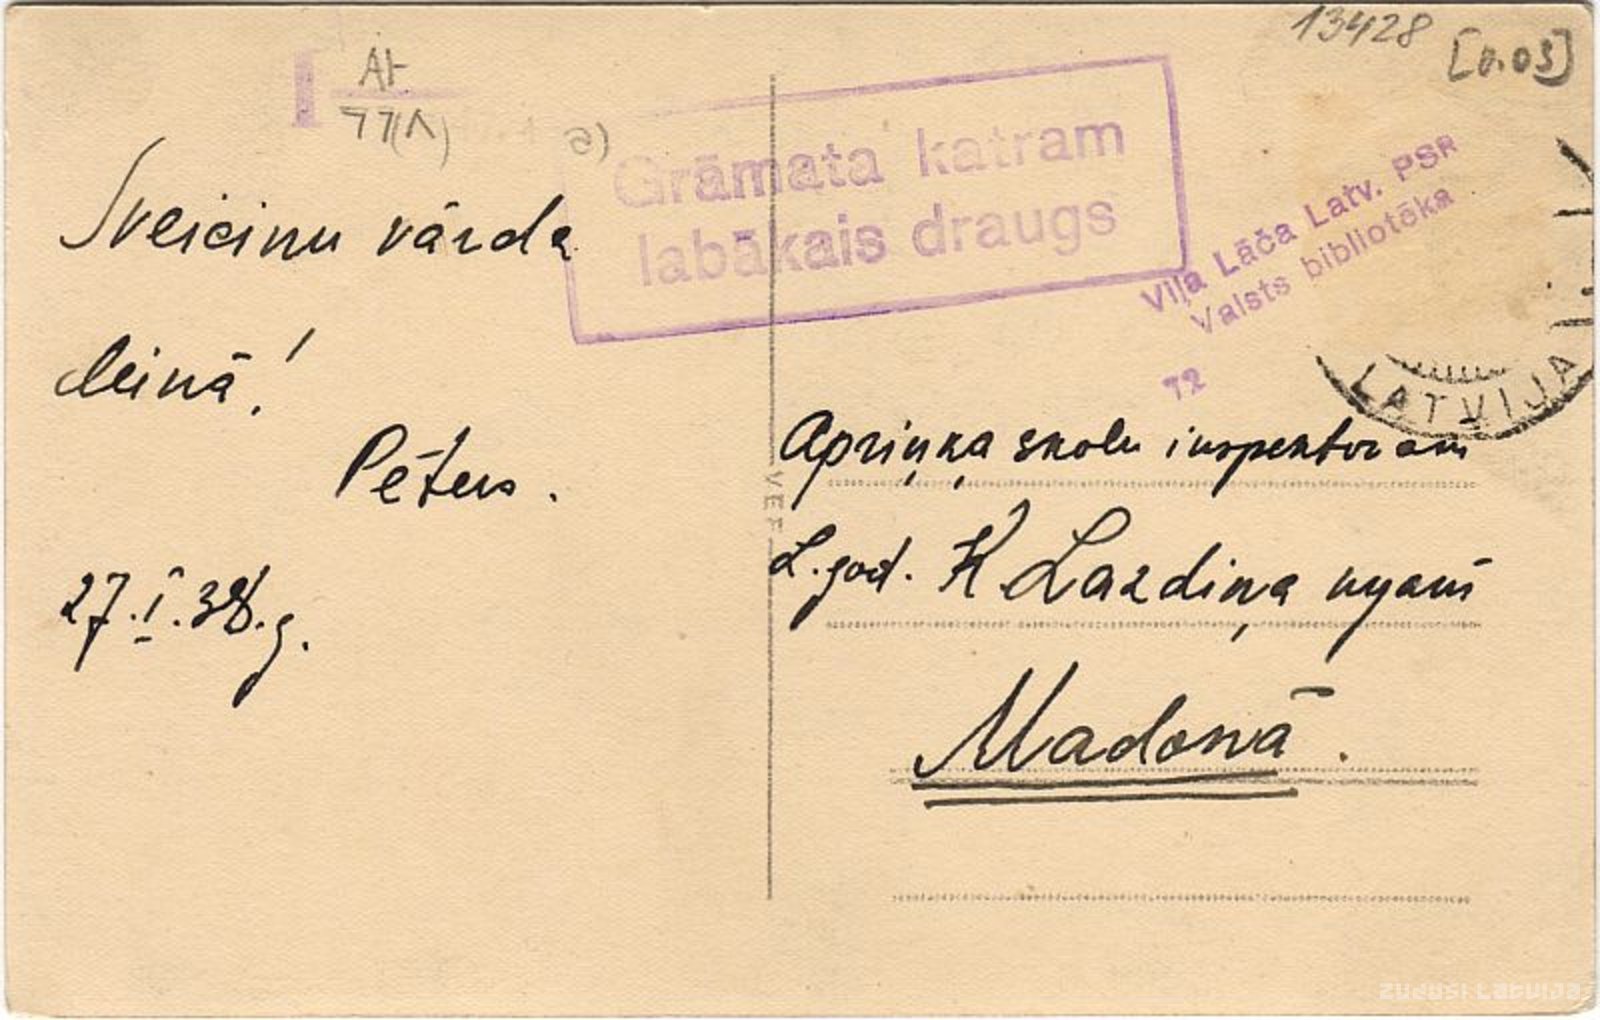 13428
[0.03]
A+
77(1)
a)
Grāmata katram
labākais draugs
Viļa Lāča Latv. PSR
Valsts bibliotēka
72
LATVIJA
Sveicinu vārda
deinā!
Pēters.
27.I.38.g.
VEF
Apriņķa skolu inspektoram
L.god. K. Lazdiņa kgam
Madonā.
zudusi Latvija